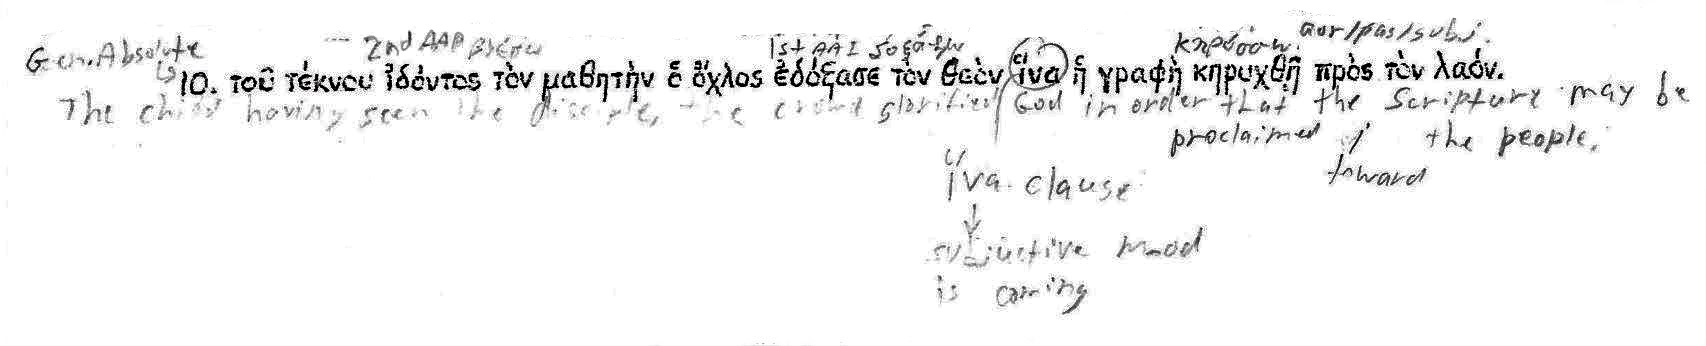 Gen. Absolute 2nd AAP βλέπω 1st AAI δοξάζω κηρύσσω aor/pas/subj.
is
10. τοῦ τέκνου ἰδόντος τὸν μαθητὴν ὁ ὄχλος ἐδόξασε τὸν θεὸν ἵνα ἡ γραφὴ κηρυχθῇ πρὸς τὸν λαόν.
The child having seen the disciple, the crowd glorified God in order that the Scripture may be
proclaimed the people.
toward
ἵνα clause
↓
mood
is coming